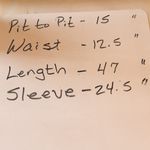 Pit to Pit - 15 "
Waist - 12.5 "
Length - 47 "
Sleeve - 24.5 "